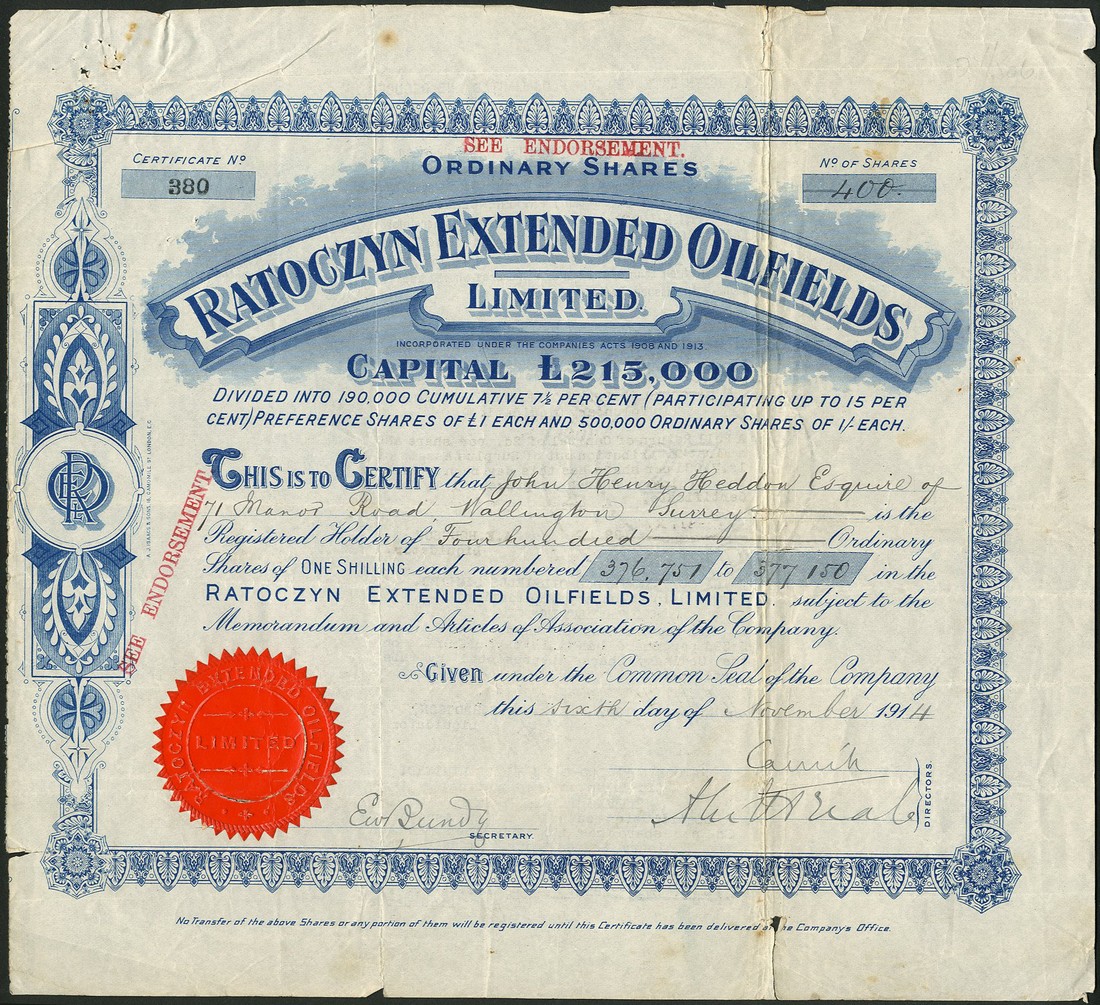 SEE ENDORSEMENT.
CERTIFICATE No.
380
ORDINARY SHARES
No. OF SHARES
400.
RATOCZYN EXTENDED OILFIELDS
LIMITED.
INCORPORATED UNDER THE COMPANIES ACTS 1908 AND 1913
CAPITAL £215,000
DIVIDED INTO 190,000 CUMULATIVE 7½ PER CENT (PARTICIPATING UP TO 15 PER
CENT) PREFERENCE SHARES OF £1 EACH AND 500,000 ORDINARY SHARES OF 1/- EACH.
THIS IS TO CERTIFY that John Henry Heddon Esquire of
71 Manor Road, Wallington Surrey is the
Registered Holder of Four hundred Ordinary
Shares of ONE SHILLING each numbered 376,751 to 377150 in the
RATOCZYN EXTENDED OILFIELDS, LIMITED. subject to the
Memorandum and Articles of Association of the Company.
Given under the Common Seal of the Company
this sixth day of November 1914
SEE ENDORSEMENT
A.J. ISAACS & SONS, 16, CAMOMILE ST. LONDON, E.C.
REO
RATOCZYN EXTENDED OILFIELDS
LIMITED
DIRECTORS.
SECRETARY.
No Transfer of the above Shares or any portion of them will be registered until this Certificate has been delivered at the Company's Office.